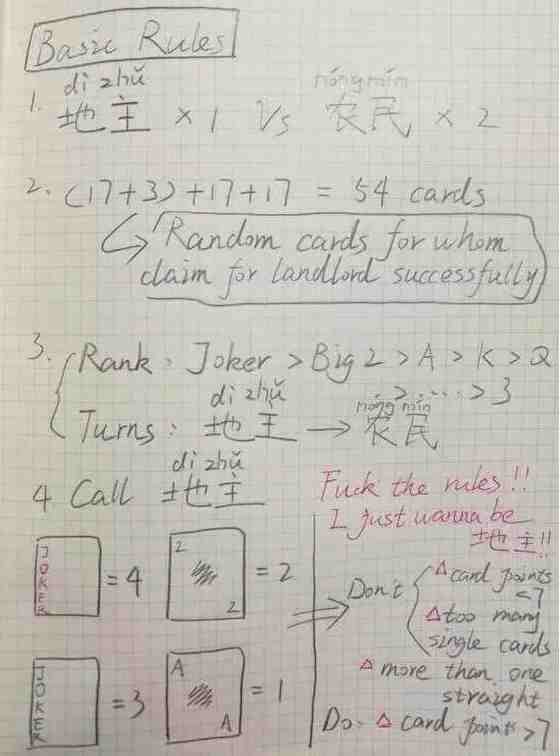 Basic Rules
dì zhǔ nóng mín
1. 地主 × 1 Vs 农民 × 2
2. (17+3)+17+17 = 54 cards
Random cards for whom
claim for landlord successfully
3. Rank: Joker > Big 2 > A > K > Q
> ... > 3
dì zhǔ nóng mín
Turns: 地主 → 农民
dì zhǔ
4 Call 地主
Fuck the rules!!
I just wanna be
地主!!
JOKER = 4
2 2 = 2
JOKER = 3
A A = 1
Don't △ card points
<7
△ too many
single cards
△ more than one
straight
Do: △ card points >7